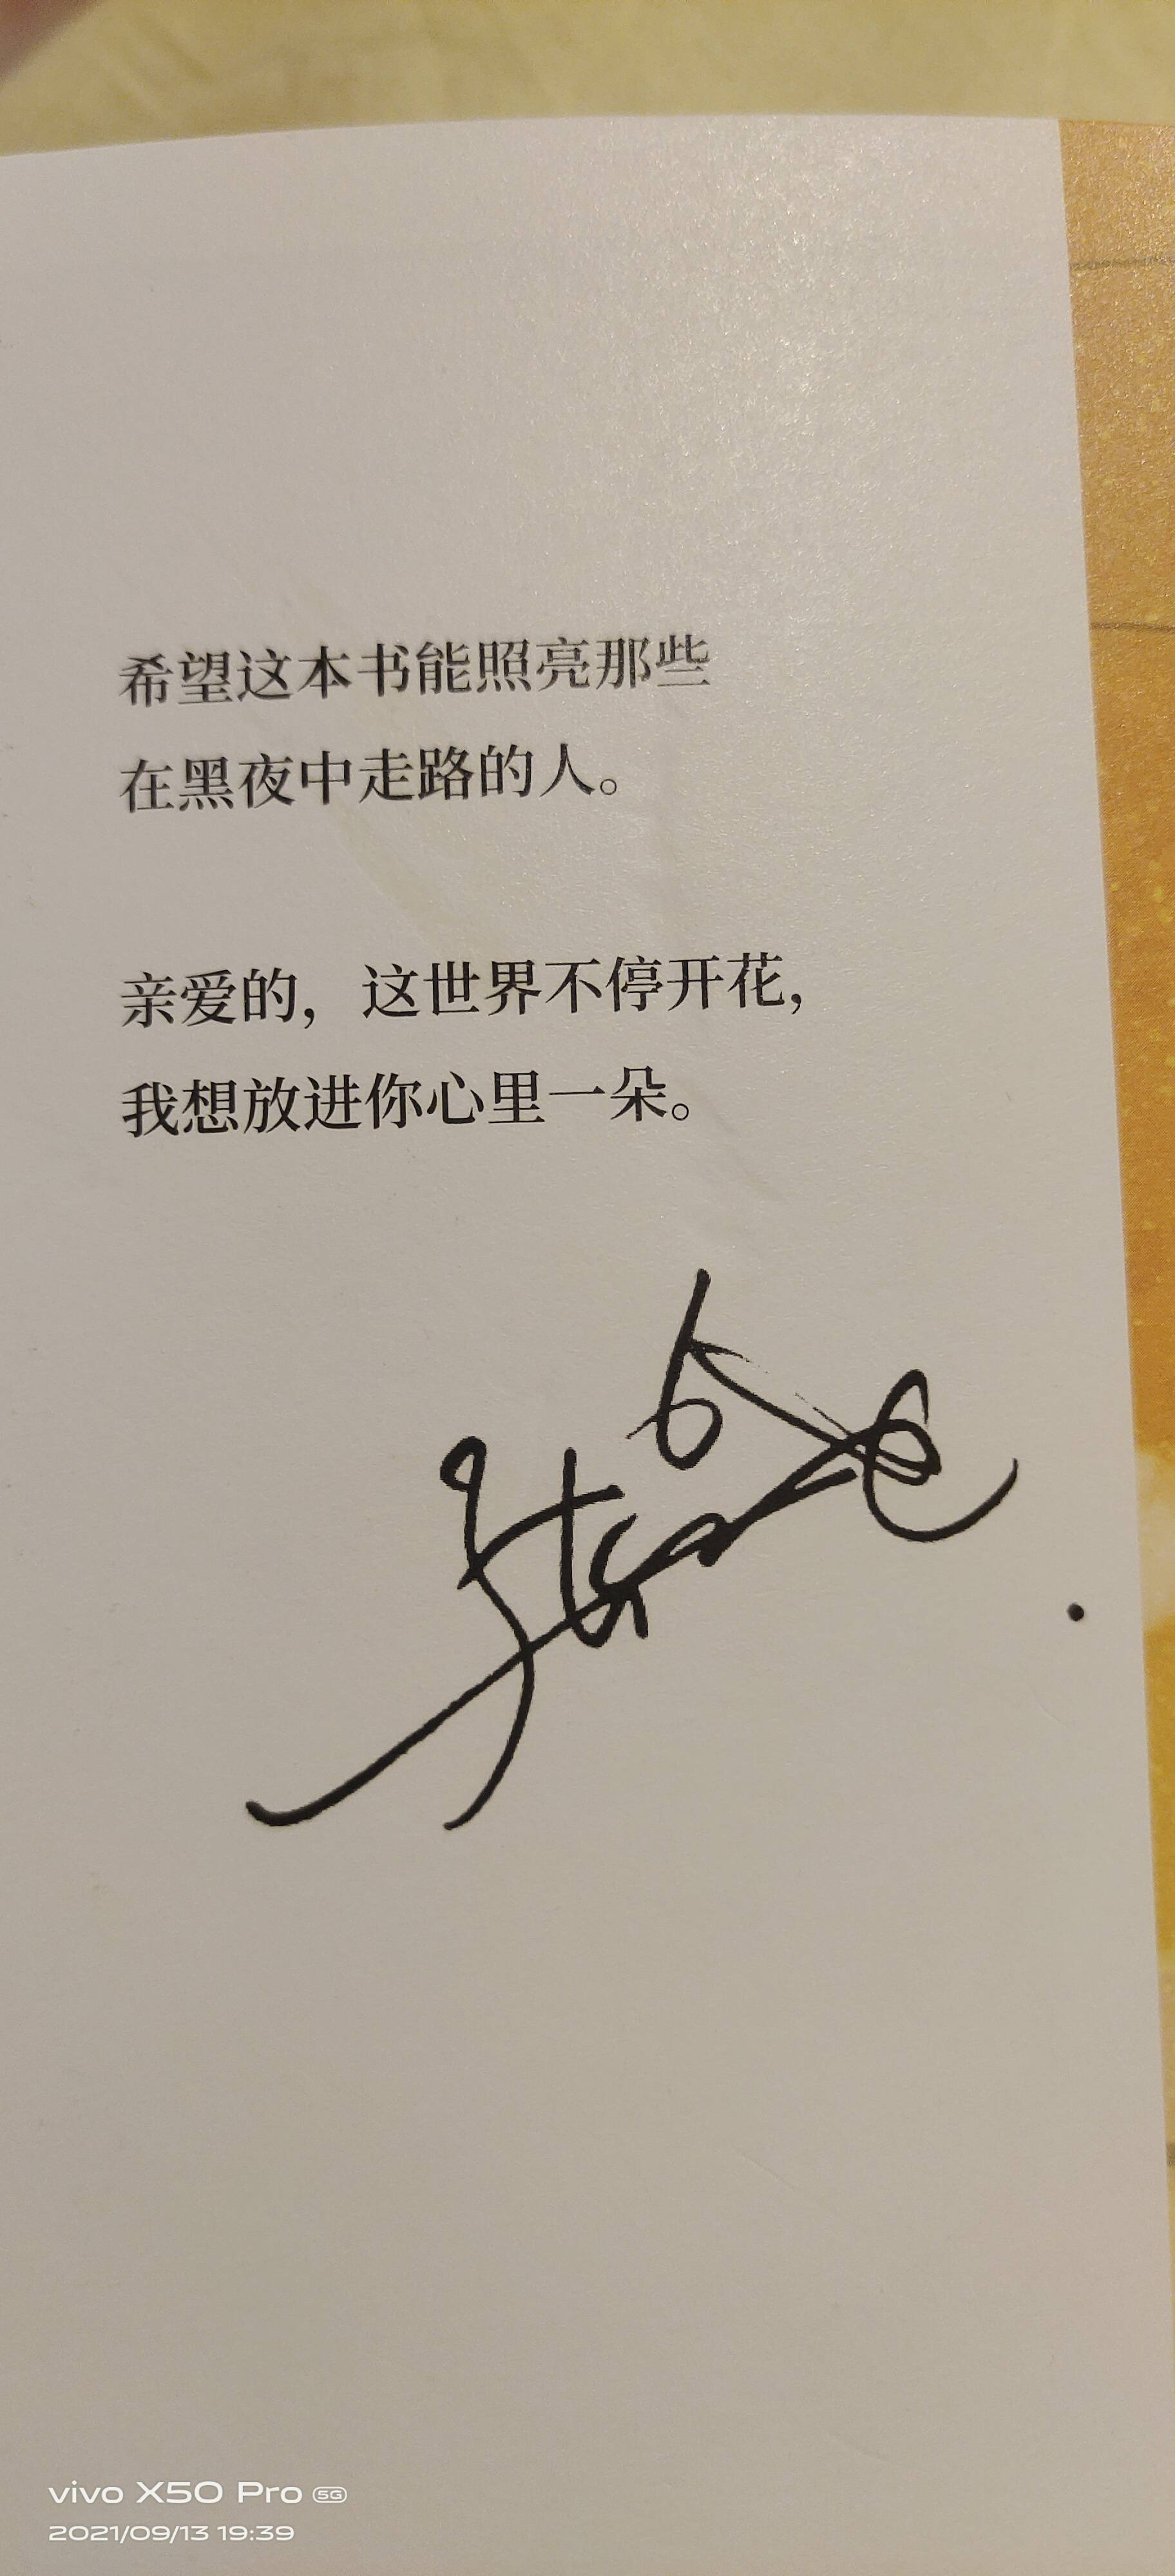 希望这本书能照亮那些
在黑夜中走路的人。
亲爱的，这世界不停开花，
我想放进你心里一朵。
vivo X50 Pro 5G
2021/09/13 19:39